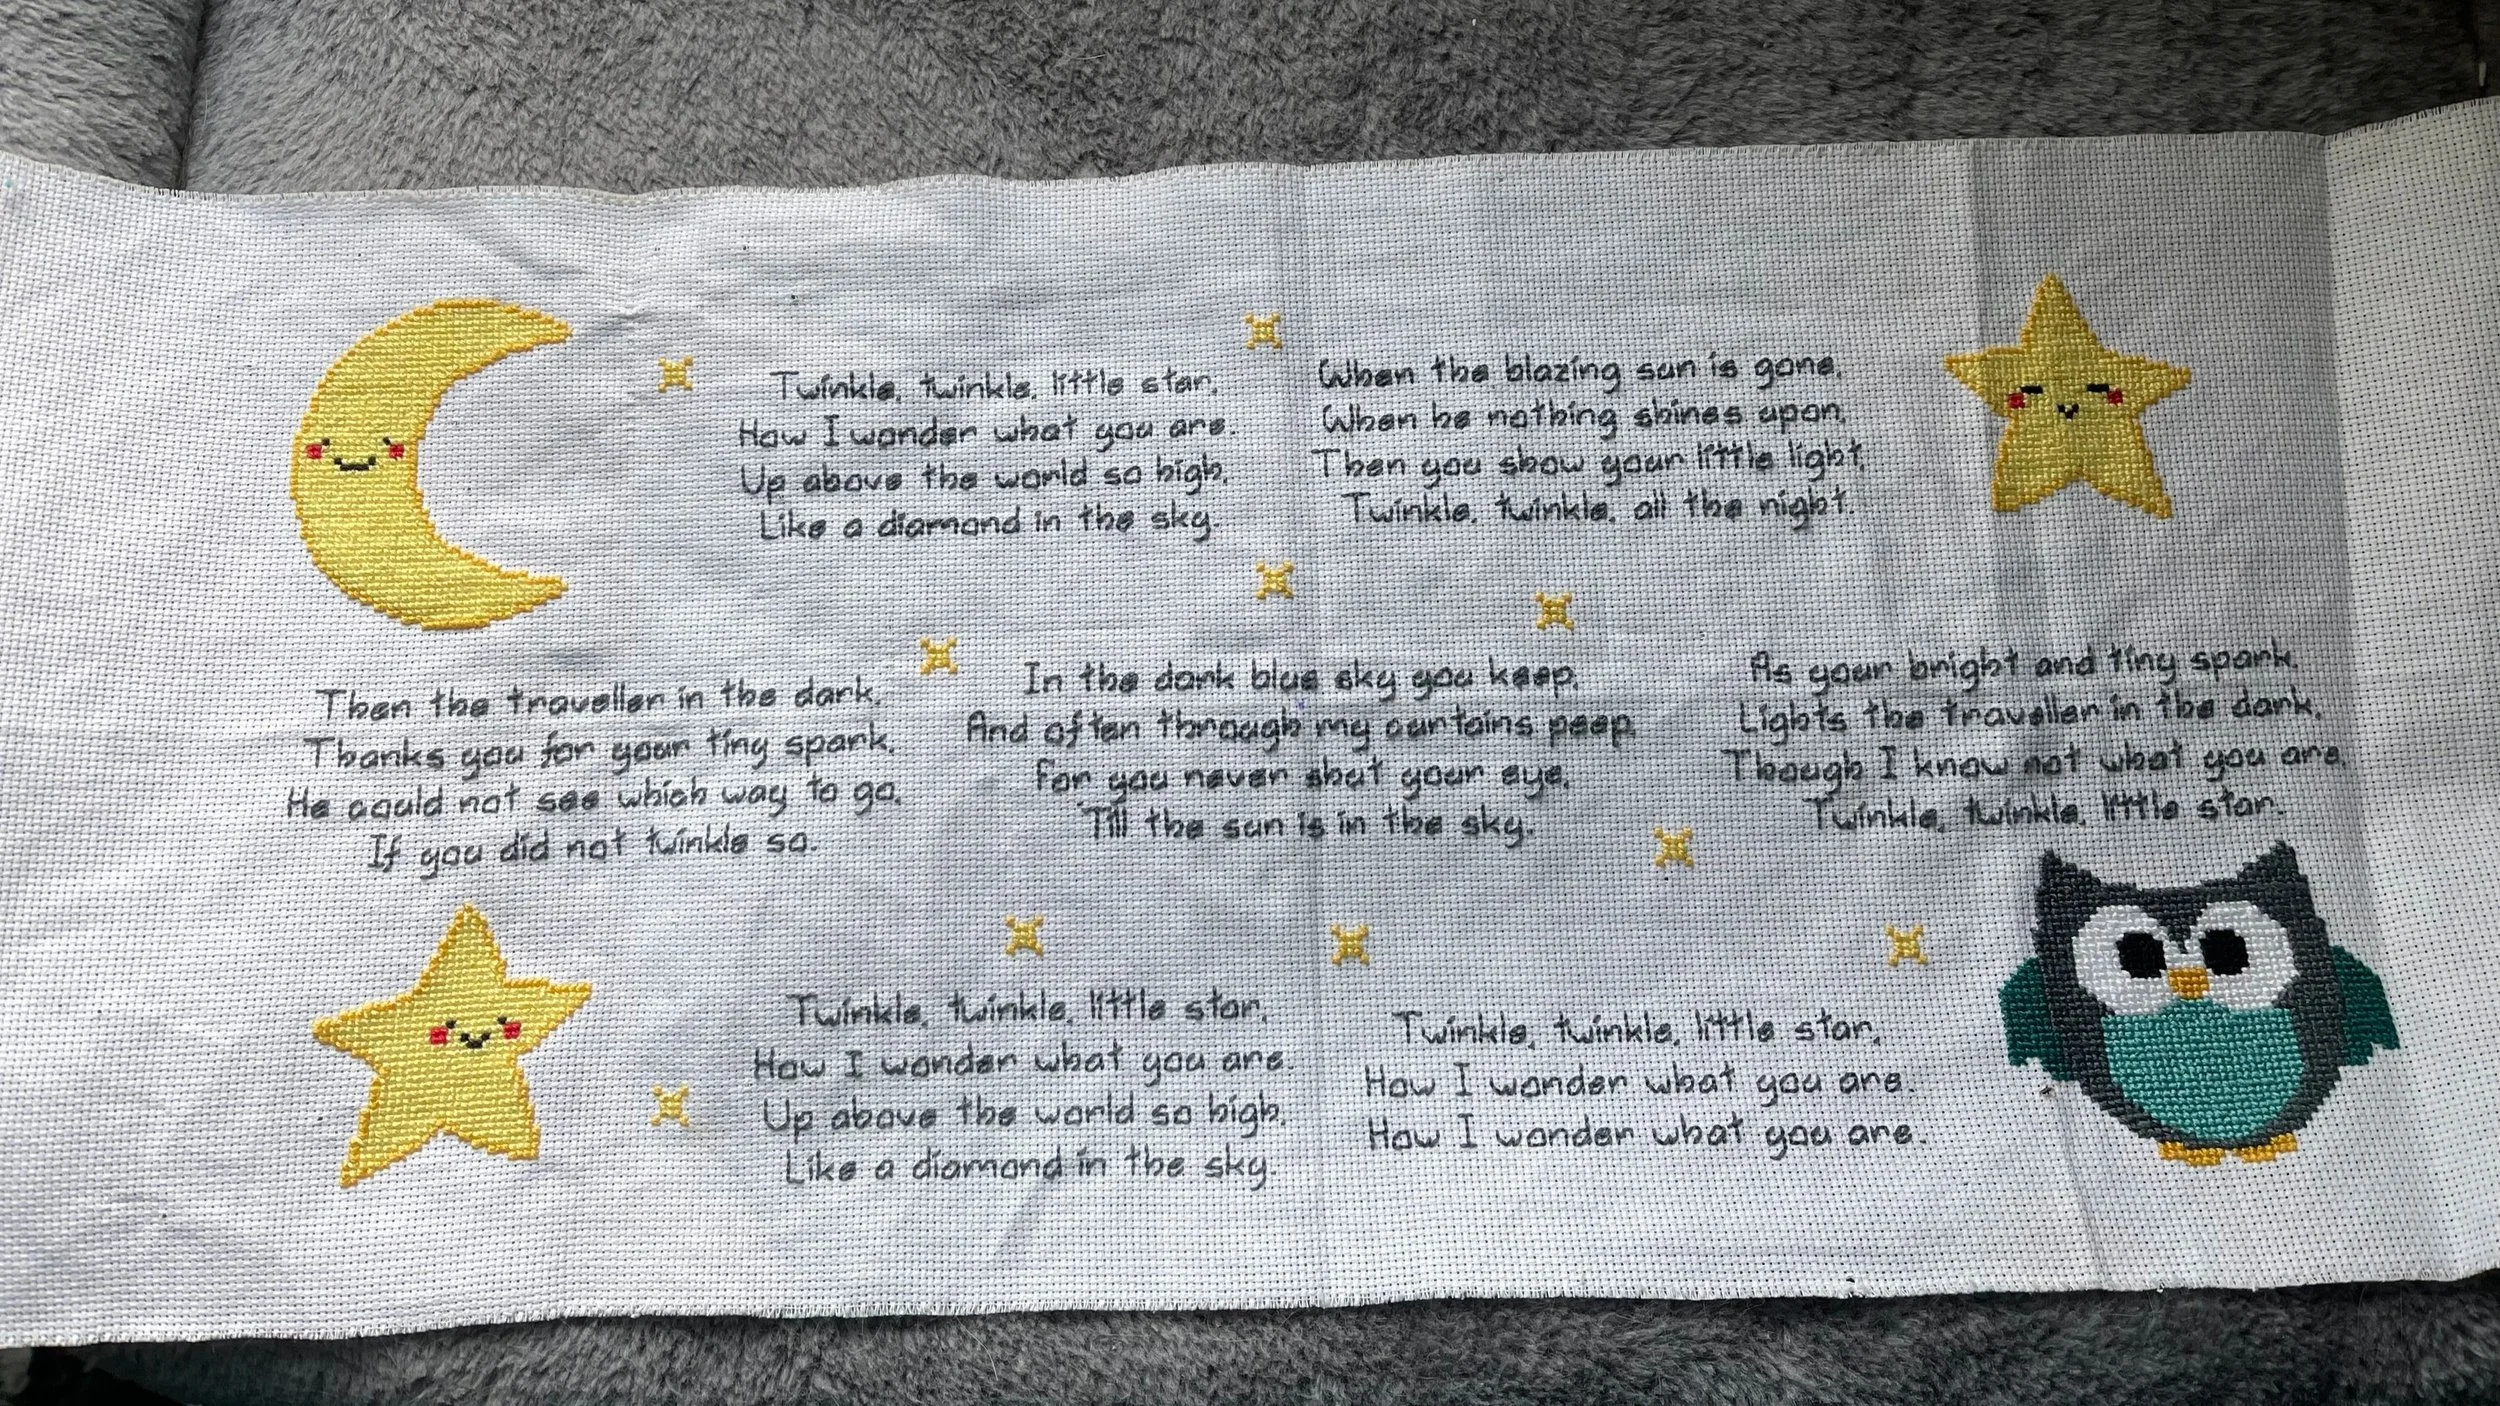 Twinkle, twinkle, little star,
How I wonder what you are.
Up above the world so high,
Like a diamond in the sky.
When the blazing sun is gone,
When he nothing shines upon,
Then you show your little light,
Twinkle, twinkle, all the night.
Then the traveller in the dark,
Thanks you for your tiny spark,
He could not see which way to go,
If you did not twinkle so.
In the dark blue sky you keep,
And often through my curtains peep
For you never shut your eye,
Till the sun is in the sky.
As your bright and tiny spark,
Lights the traveller in the dark,
Though I know not what you are,
Twinkle, twinkle, little star.
Twinkle, twinkle, little star,
How I wonder what you are.
Up above the world so high,
Like a diamond in the sky.
Twinkle, twinkle, little star,
How I wonder what you are.
How I wonder what you are.